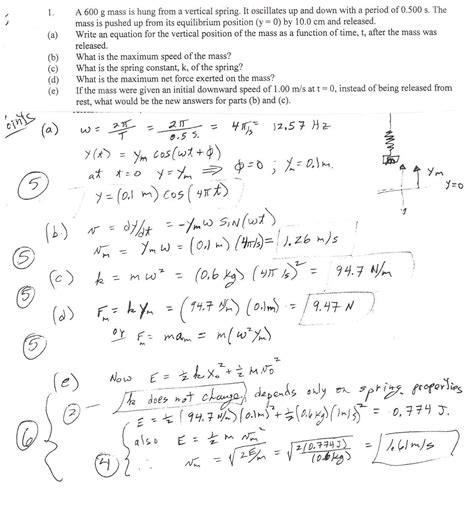 1. A 600 g mass is hung from a vertical spring. It oscillates up and down with a period of 0.500 s. The
mass is pushed up from its equilibrium position (y = 0) by 10.0 cm and released.
(a) Write an equation for the vertical position of the mass as a function of time, t, after the mass was
released.
(b) What is the maximum speed of the mass?
(c) What is the spring constant, k, of the spring?
(d) What is the maximum net force exerted on the mass?
(e) If the mass were given an initial downward speed of 1.00 m/s at t = 0, instead of being released from
rest, what would be the new answers for parts (b) and (c).
(a) ω = 2π/T = 2π/0.5 s. = 4π/s = 12.57 Hz
y(t) = ym cos(ωt + ϕ)
at t=0 y = ym ⇒ ϕ=0 ; ym = 0.1m.
ym
y=0
5
y = (0.1 m) cos(4πt)
(b.) v = dy/dt = -ymω SIN(ωt)
5
vm = ymω = (0.1m)(4π/s) = 1.26 m/s
(c) k = mω² = (0.6 kg)(4π/s)² = 94.7 N/m
5
(d) Fm = kym = (94.7 N/m)(0.1m) = 9.47 N
5
or Fm = mam = m(ω²ym)
(e) Now E = ½kx₀² + ½mv₀²
2 k does not change, depends only on spring properties
6
E = ½(94.7 N/m)(0.1m)² + ½(0.6kg)(1m/s)² = 0.774 J.
also E = ½ m vm²
4
∴ vm = √2E/m = √2(0.774J)/(0.6kg) = 1.61m/s